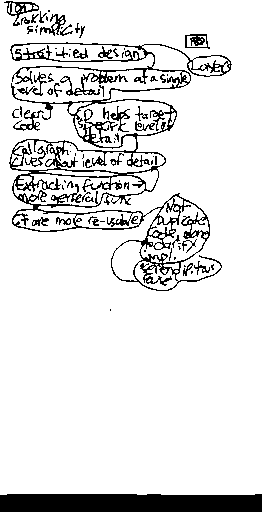 Grokking
Simplicity
Stratified design
Layers
Solves a problem at a single
level of detail
Clean
Code
SD helps target
specific level of
detail
Call graph
clues about level of detail
Extracting function →
more general func
are more re-usable
Not
Duplicate
code, done
to clarify
impl.
reuse